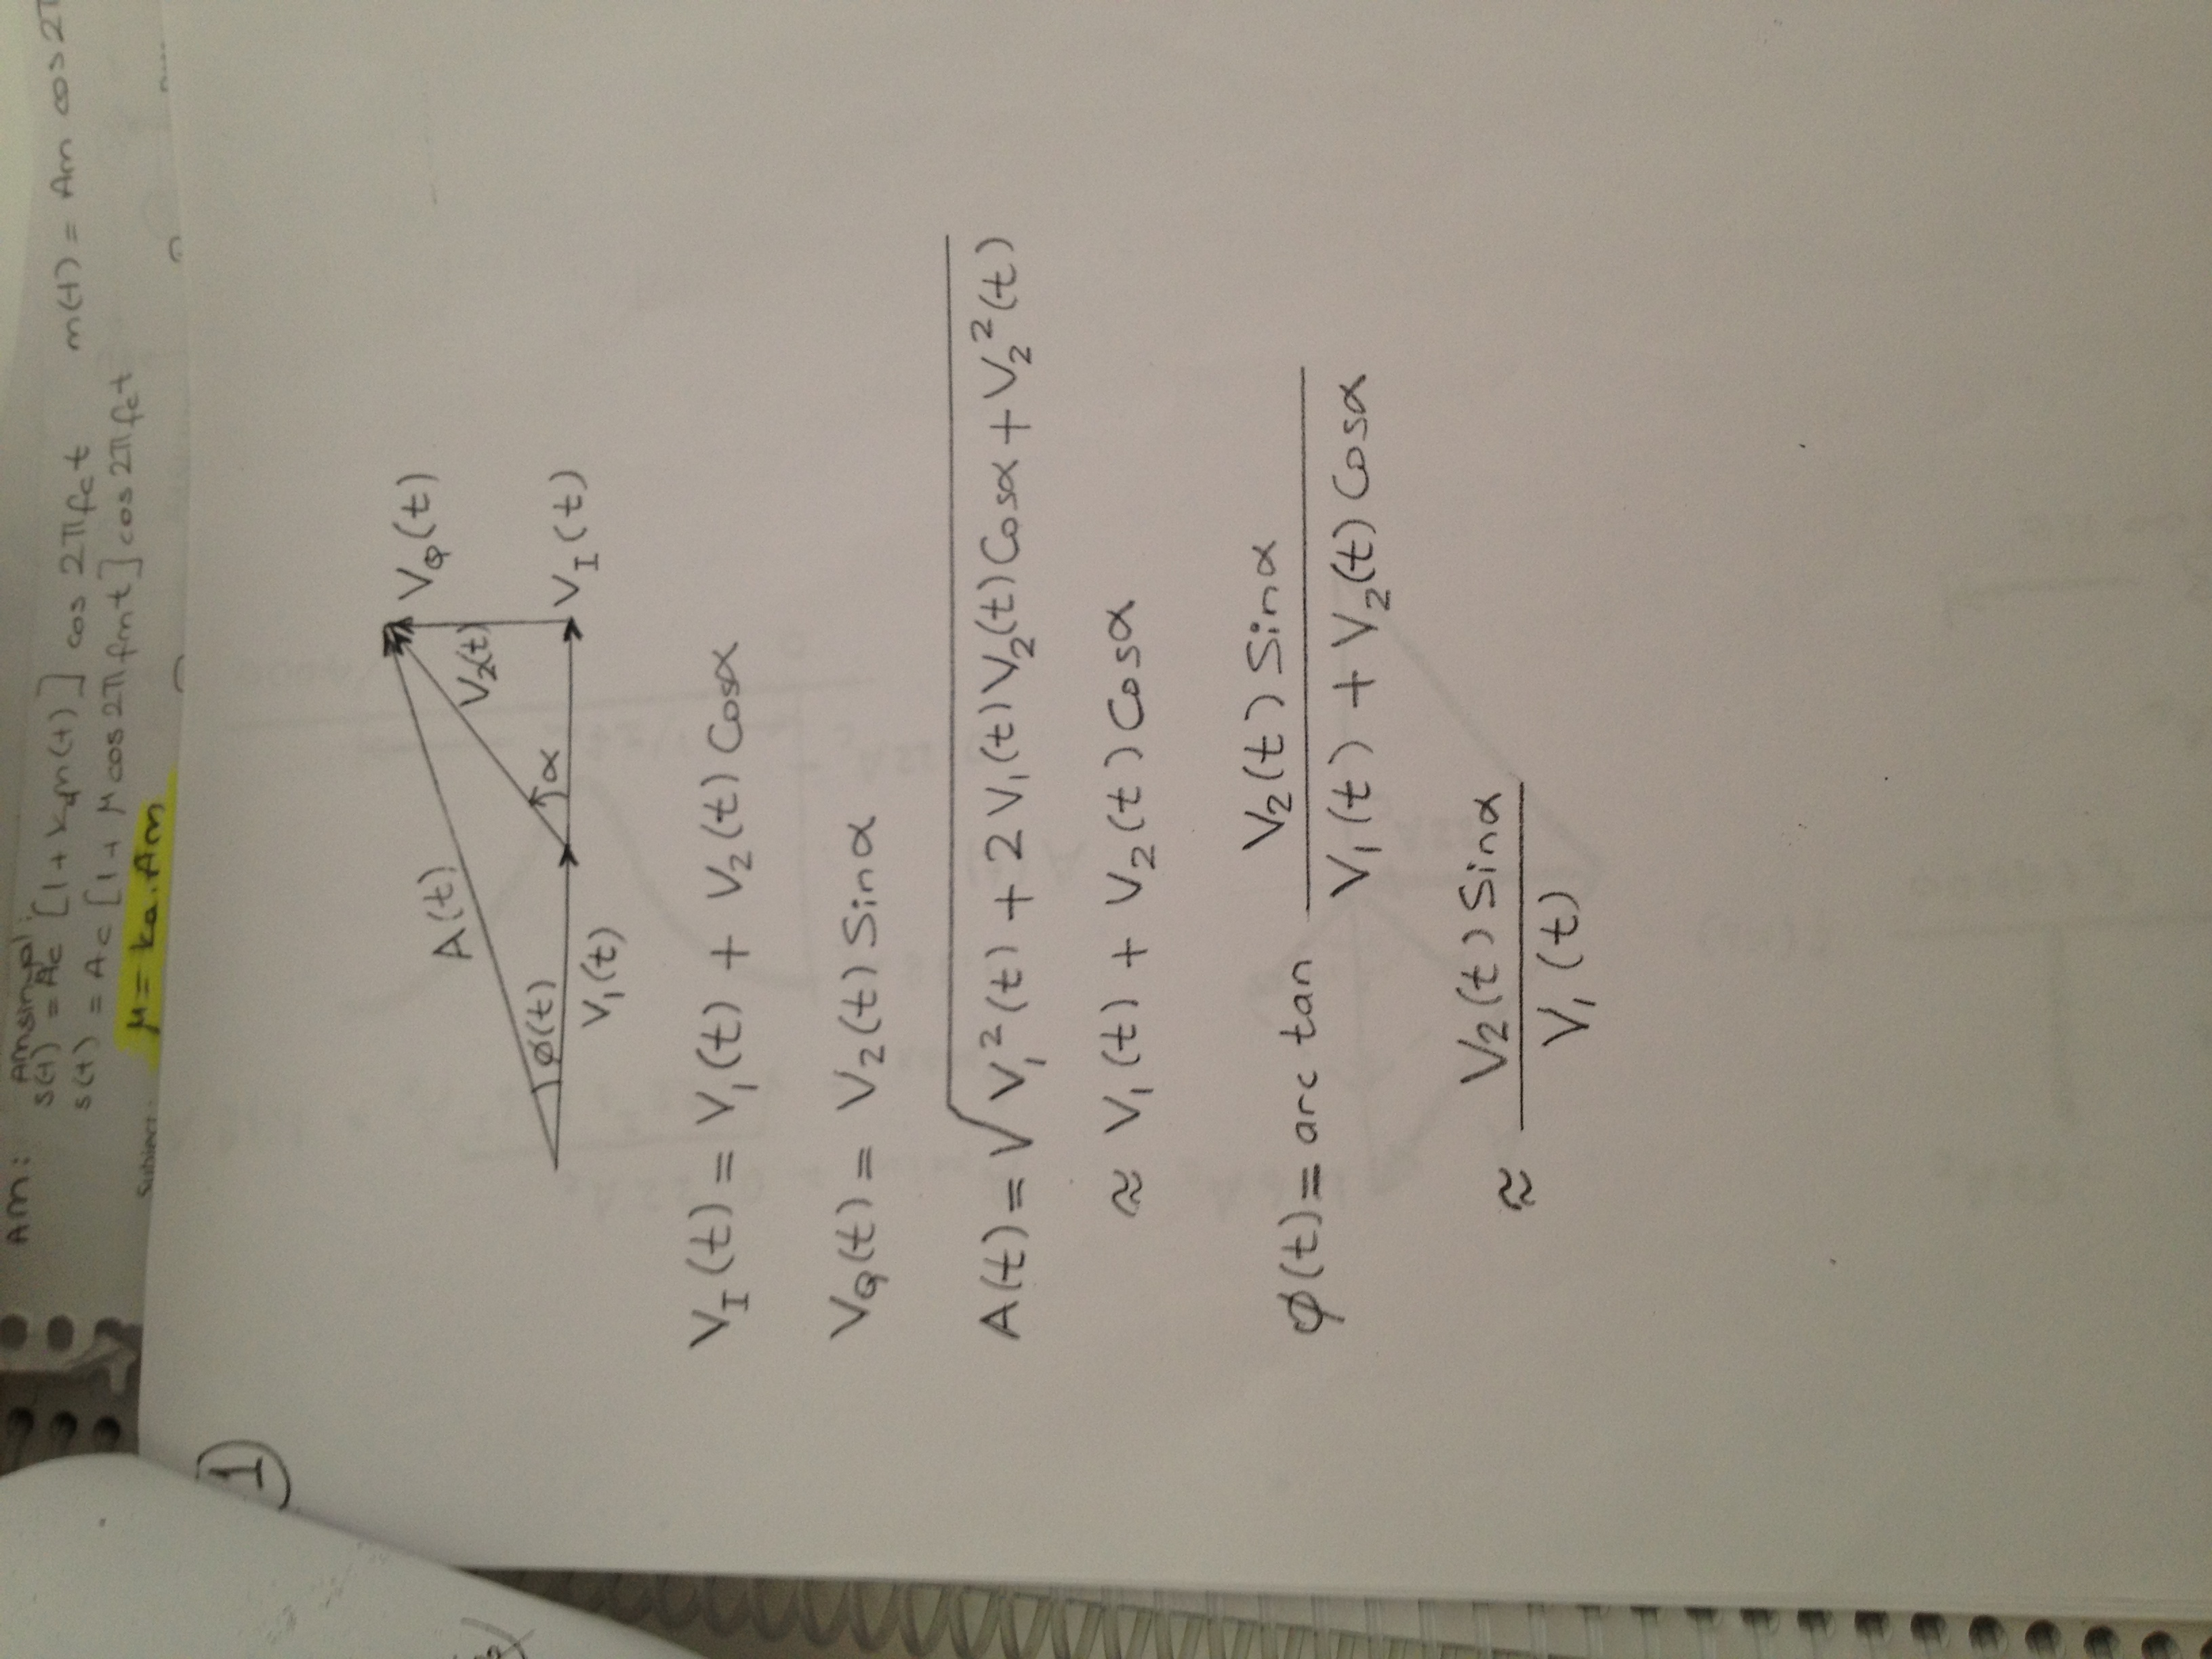 AM: AM sinyal:
s(t) = Ac [1 + kam(t)] cos 2πfct m(t) = Am cos 2π
s(t) = Ac [1 + μ cos 2πfmt] cos 2πfct
Subject:
μ = ka.Am
1
A(t)
VQ(t)
V2(t)
φ(t)
α
VI(t)
V1(t)
VI(t) = V1(t) + V2(t) Cosα
VQ(t) = V2(t) Sinα
A(t) = √V1²(t) + 2 V1(t) V2(t) Cosα + V2²(t)
≈ V1(t) + V2(t) Cosα
φ(t) = arc tan V2(t) Sinα
V1(t) + V2(t) Cosα
≈ V2(t) Sinα
V1(t)